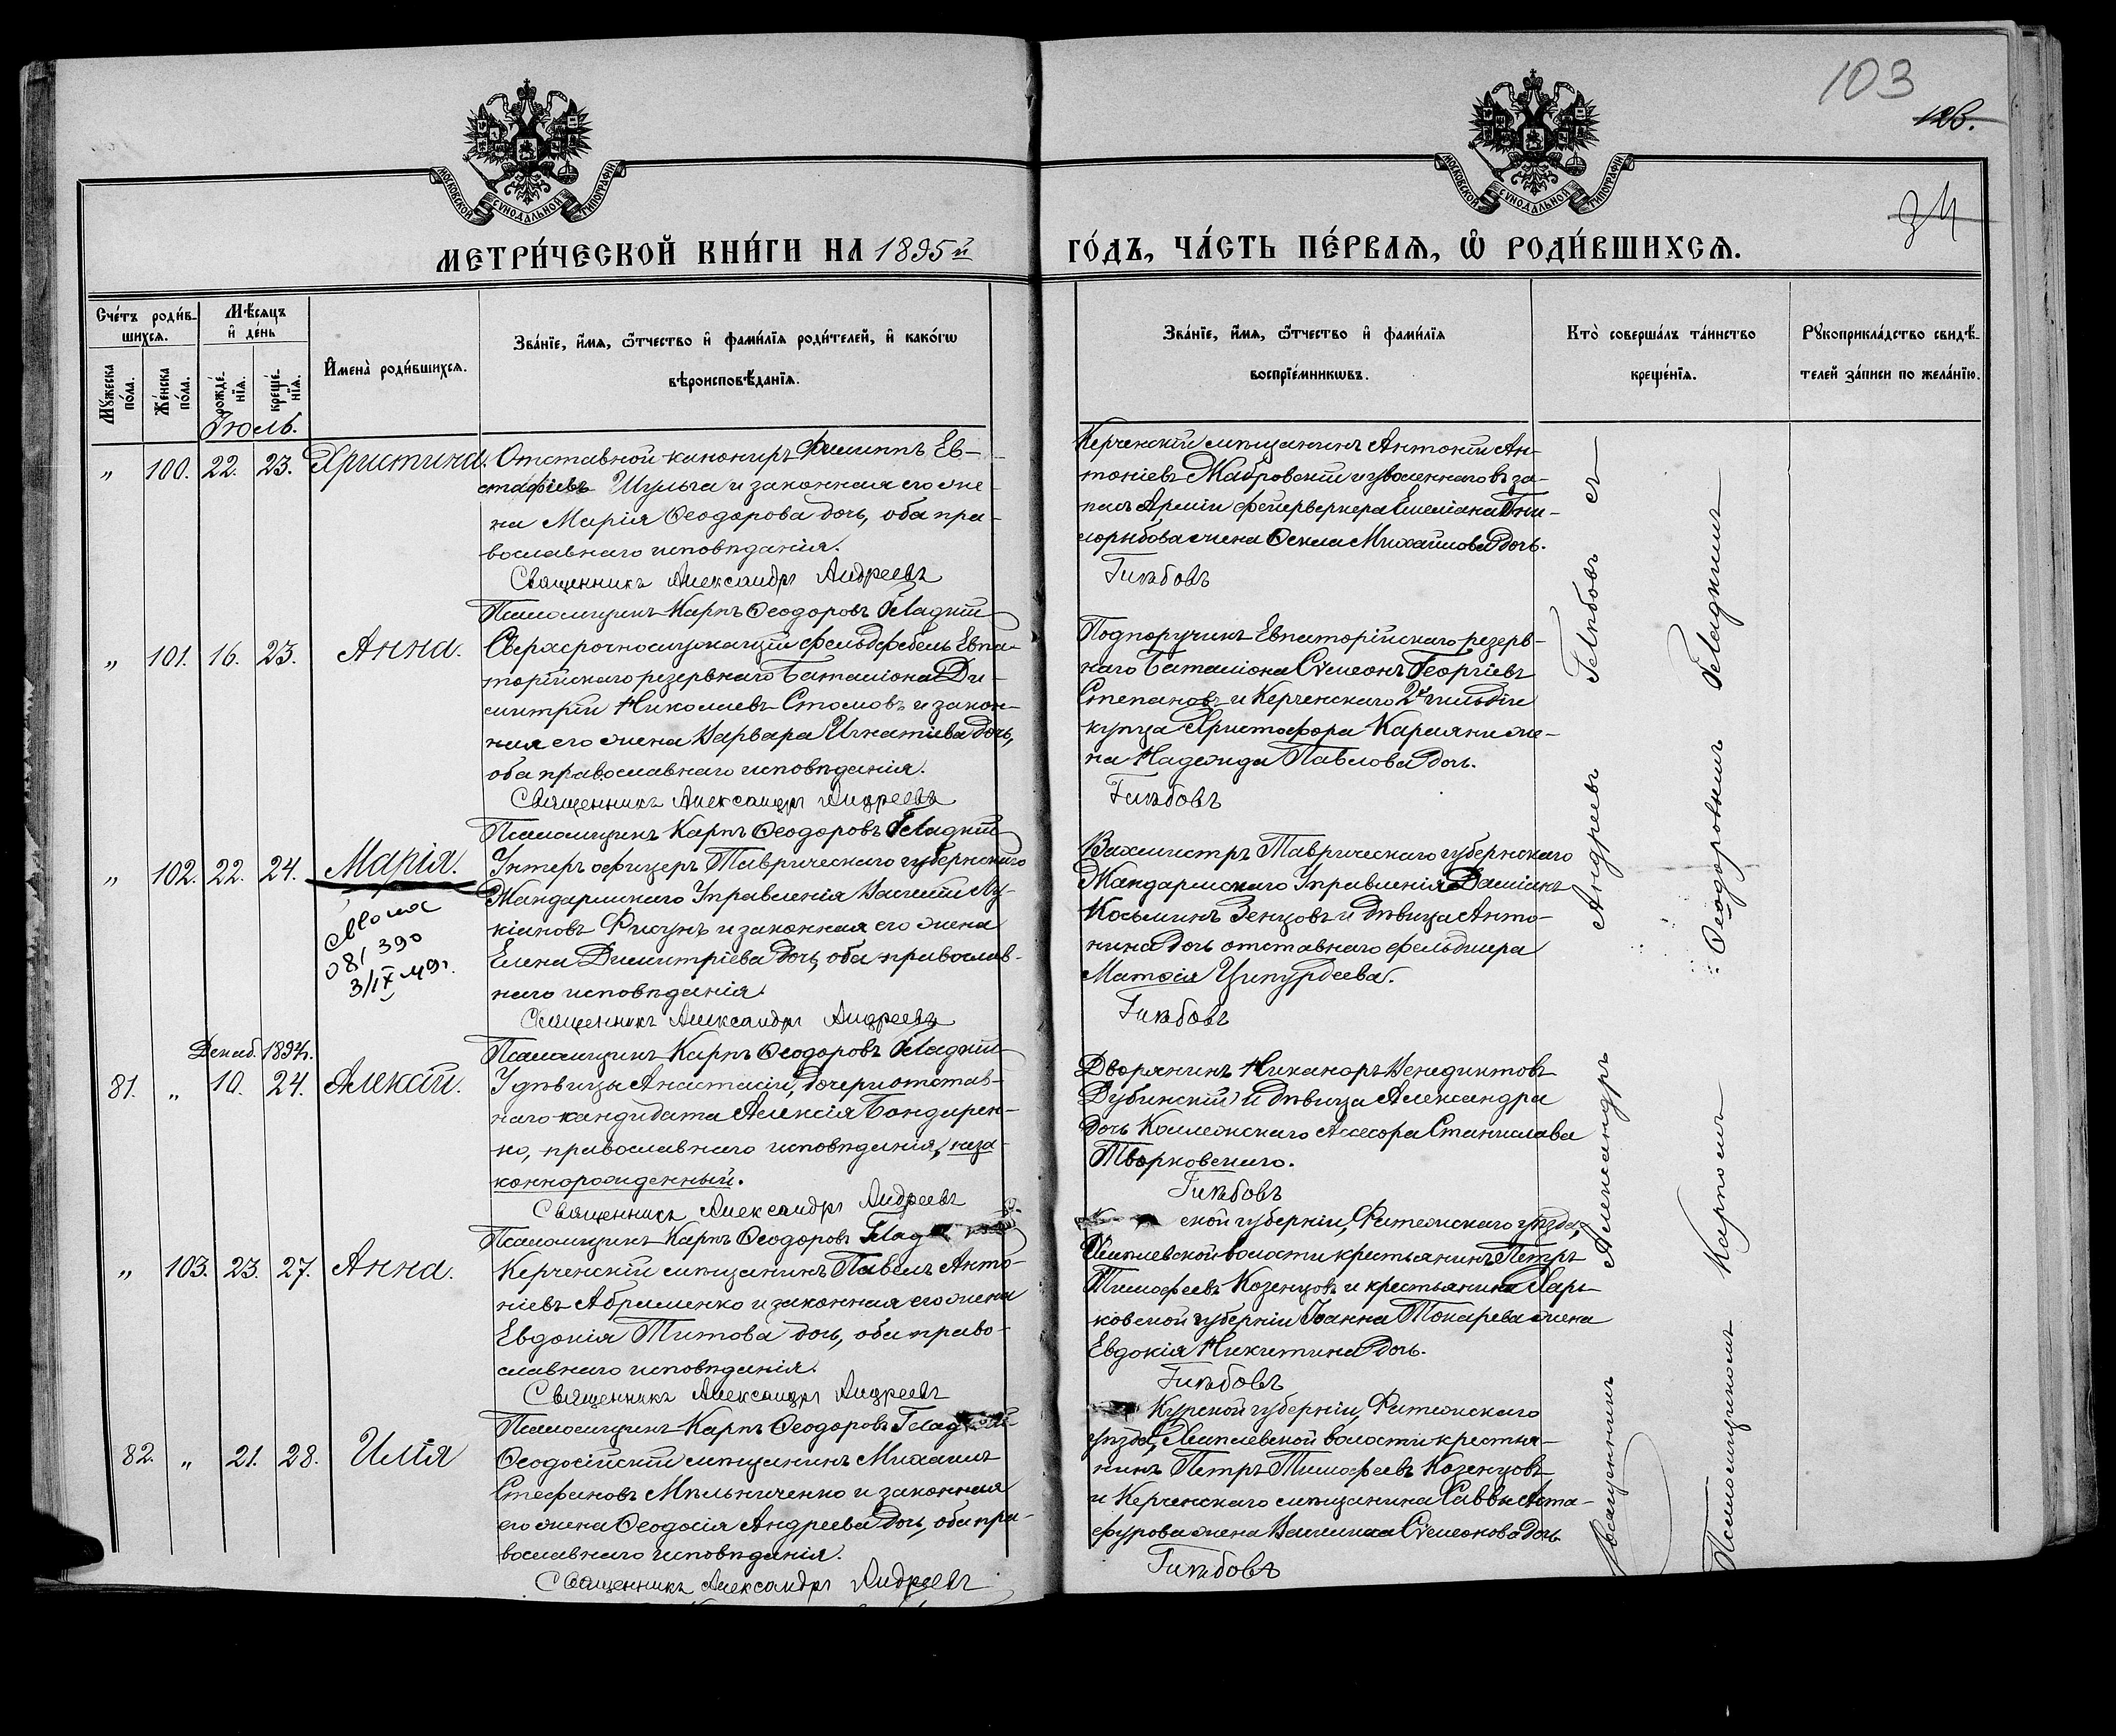 103
123.
34
МОСКОВСКОЙ СУНОДАЛЬНОЙ ТИПОГРАФІИ
МОСКОВСКОЙ СУНОДАЛЬНОЙ ТИПОГРАФІИ
МЕТРИ́ЧЕСКОЙ КНИ́ГИ НА 1895й
ГО́ДЪ, ЧА́СТЬ ПЕ́РВАѦ, Ѡ҆ РОДИ́ВШИХСѦ.
Сче́тъ роди́в-
шихсѧ.
Мѣ́сѧцъ
и҆ де́нь
Мꙋ́жеска
по́ла.
Же́нска
по́ла.
рожде́-
нїѧ.
креще́-
нїѧ.
И҆мена̀ роди́вшихсѧ.
Зва́нїе, и҆́мѧ, ѻ҆́тчество и҆ фами́лїѧ роди́телей, и҆ како́гѡ
вѣроисповѣ́данїѧ.
Зва́нїе, и҆́мѧ, ѻ҆́тчество и҆ фами́лїѧ
воспрїе́мникѡвъ.
Кто̀ соверша́лъ та́инство
креще́нїѧ.
Рꙋкоприкла́дство свидѣ́-
телей за́писи по жела́нїю.
Іюль.
„ 100. 22. 23. Христина.
Отставной канониръ Филиппъ Ев-
стафіевъ Шульга и законная его же-
на Марія Ѳеодорова дочь, оба пра-
вославнаго исповѣданія.
Священникъ Александръ Андреевъ
Псаломщикъ Карпъ Ѳеодоровъ Гладкій
Керченскій мѣщанинъ Антоній Ан-
тоніевъ Жабровскій и уволеннаго въ за-
пасъ Арміи фейерверкера Емеліана Гни-
лорыбова жена Ѳекла Михайлова дочь.
Глѣбовъ
„ 101. 16. 23. Анна.
Сверхсрочнослужащій фельдфебель Евпа-
торійскаго резервнаго Баталіона Ди-
митрій Николаевъ Стомовъ и закон-
ная его жена Варвара Игнатіева дочь,
оба православнаго исповѣданія.
Священникъ Александръ Андреевъ
Псаломщикъ Карпъ Ѳеодоровъ Гладкій
Подпоручикъ Евпаторійскаго резерв-
наго Баталіона Сѵмеонъ Георгіевъ
Степановъ и Керченскаго 2й гильдіи
купца Христофора Кармяни же-
на Надежда Павлова дочь.
Глѣбовъ
„ 102. 22. 24. Марія.
081 390
3/IX 49г.
Унтеръ офицеръ Таврическаго губернскаго
Жандармскаго Управленія Василій Лу-
кіановъ Фисунъ и законная его жена
Елена Димитріева дочь, оба православ-
наго исповѣданія.
Священникъ Александръ Андреевъ
Псаломщикъ Карпъ Ѳеодоровъ Гладкій
Вахмистръ Таврическаго губернскаго
Жандармскаго Управленія Даміанъ
Косьминъ Зенцовъ и дѣвица Анто-
нина дочь отставнаго фельдшера
Матѳія Ципурдеева.
Глѣбовъ
Декаб. 1894г.
81. „ 10. 24. Алексій.
У дѣвицы Анастасіи, дочери отстав-
наго кандидата Алексія Бондарен-
ко, православнаго исповѣданія, неза-
коннорожденный.
Священникъ Александръ Андреевъ
Псаломщикъ Карпъ Ѳеодоровъ Глад
Дворянинъ Никаноръ Венедиктовъ
Дубинскій и дѣвица Александра
дочь Коллежскаго Ассесора Станислава
Творковскаго.
Глѣбовъ
„ 103. 23. 27. Анна.
Керченскій мѣщанинъ Павелъ Анто-
ніевъ Абраменко и законная его жена
Евдокія Титова дочь, оба право-
славнаго исповѣданія.
Священникъ Александръ Андреевъ
Псаломщикъ Карпъ Ѳеодоровъ Гладкій
ской губерніи, Фатежскаго уѣзда,
волости крестьянинъ Петръ
Тимофеевъ Козенцовъ и крестьянина Харь-
ковской губерніи Іоанна Токарева жена
Евдокія Никитина дочь.
Глѣбовъ
82. „ 21. 28. Илія
Ѳеодосійскій мѣщанинъ Михаилъ
Стефановъ Мѣльниченко и законная
его жена Ѳеодосія Андреева дочь, оба пра-
вославнаго исповѣданія.
Священникъ Александръ Андреевъ
Курской губерніи, Фатежскаго
уѣзда, волости крестья-
нинъ Петръ Тимофеевъ Козенцовъ
и Керченскаго мѣщанина Саввы Аста-
фурова жена Василиса Сѵмеонова дочь
Глѣбовъ
Священникъ Александръ Андреевъ Глѣбовъ съ
Псаломщикомъ Карпомъ Ѳеодоровымъ Гладкимъ